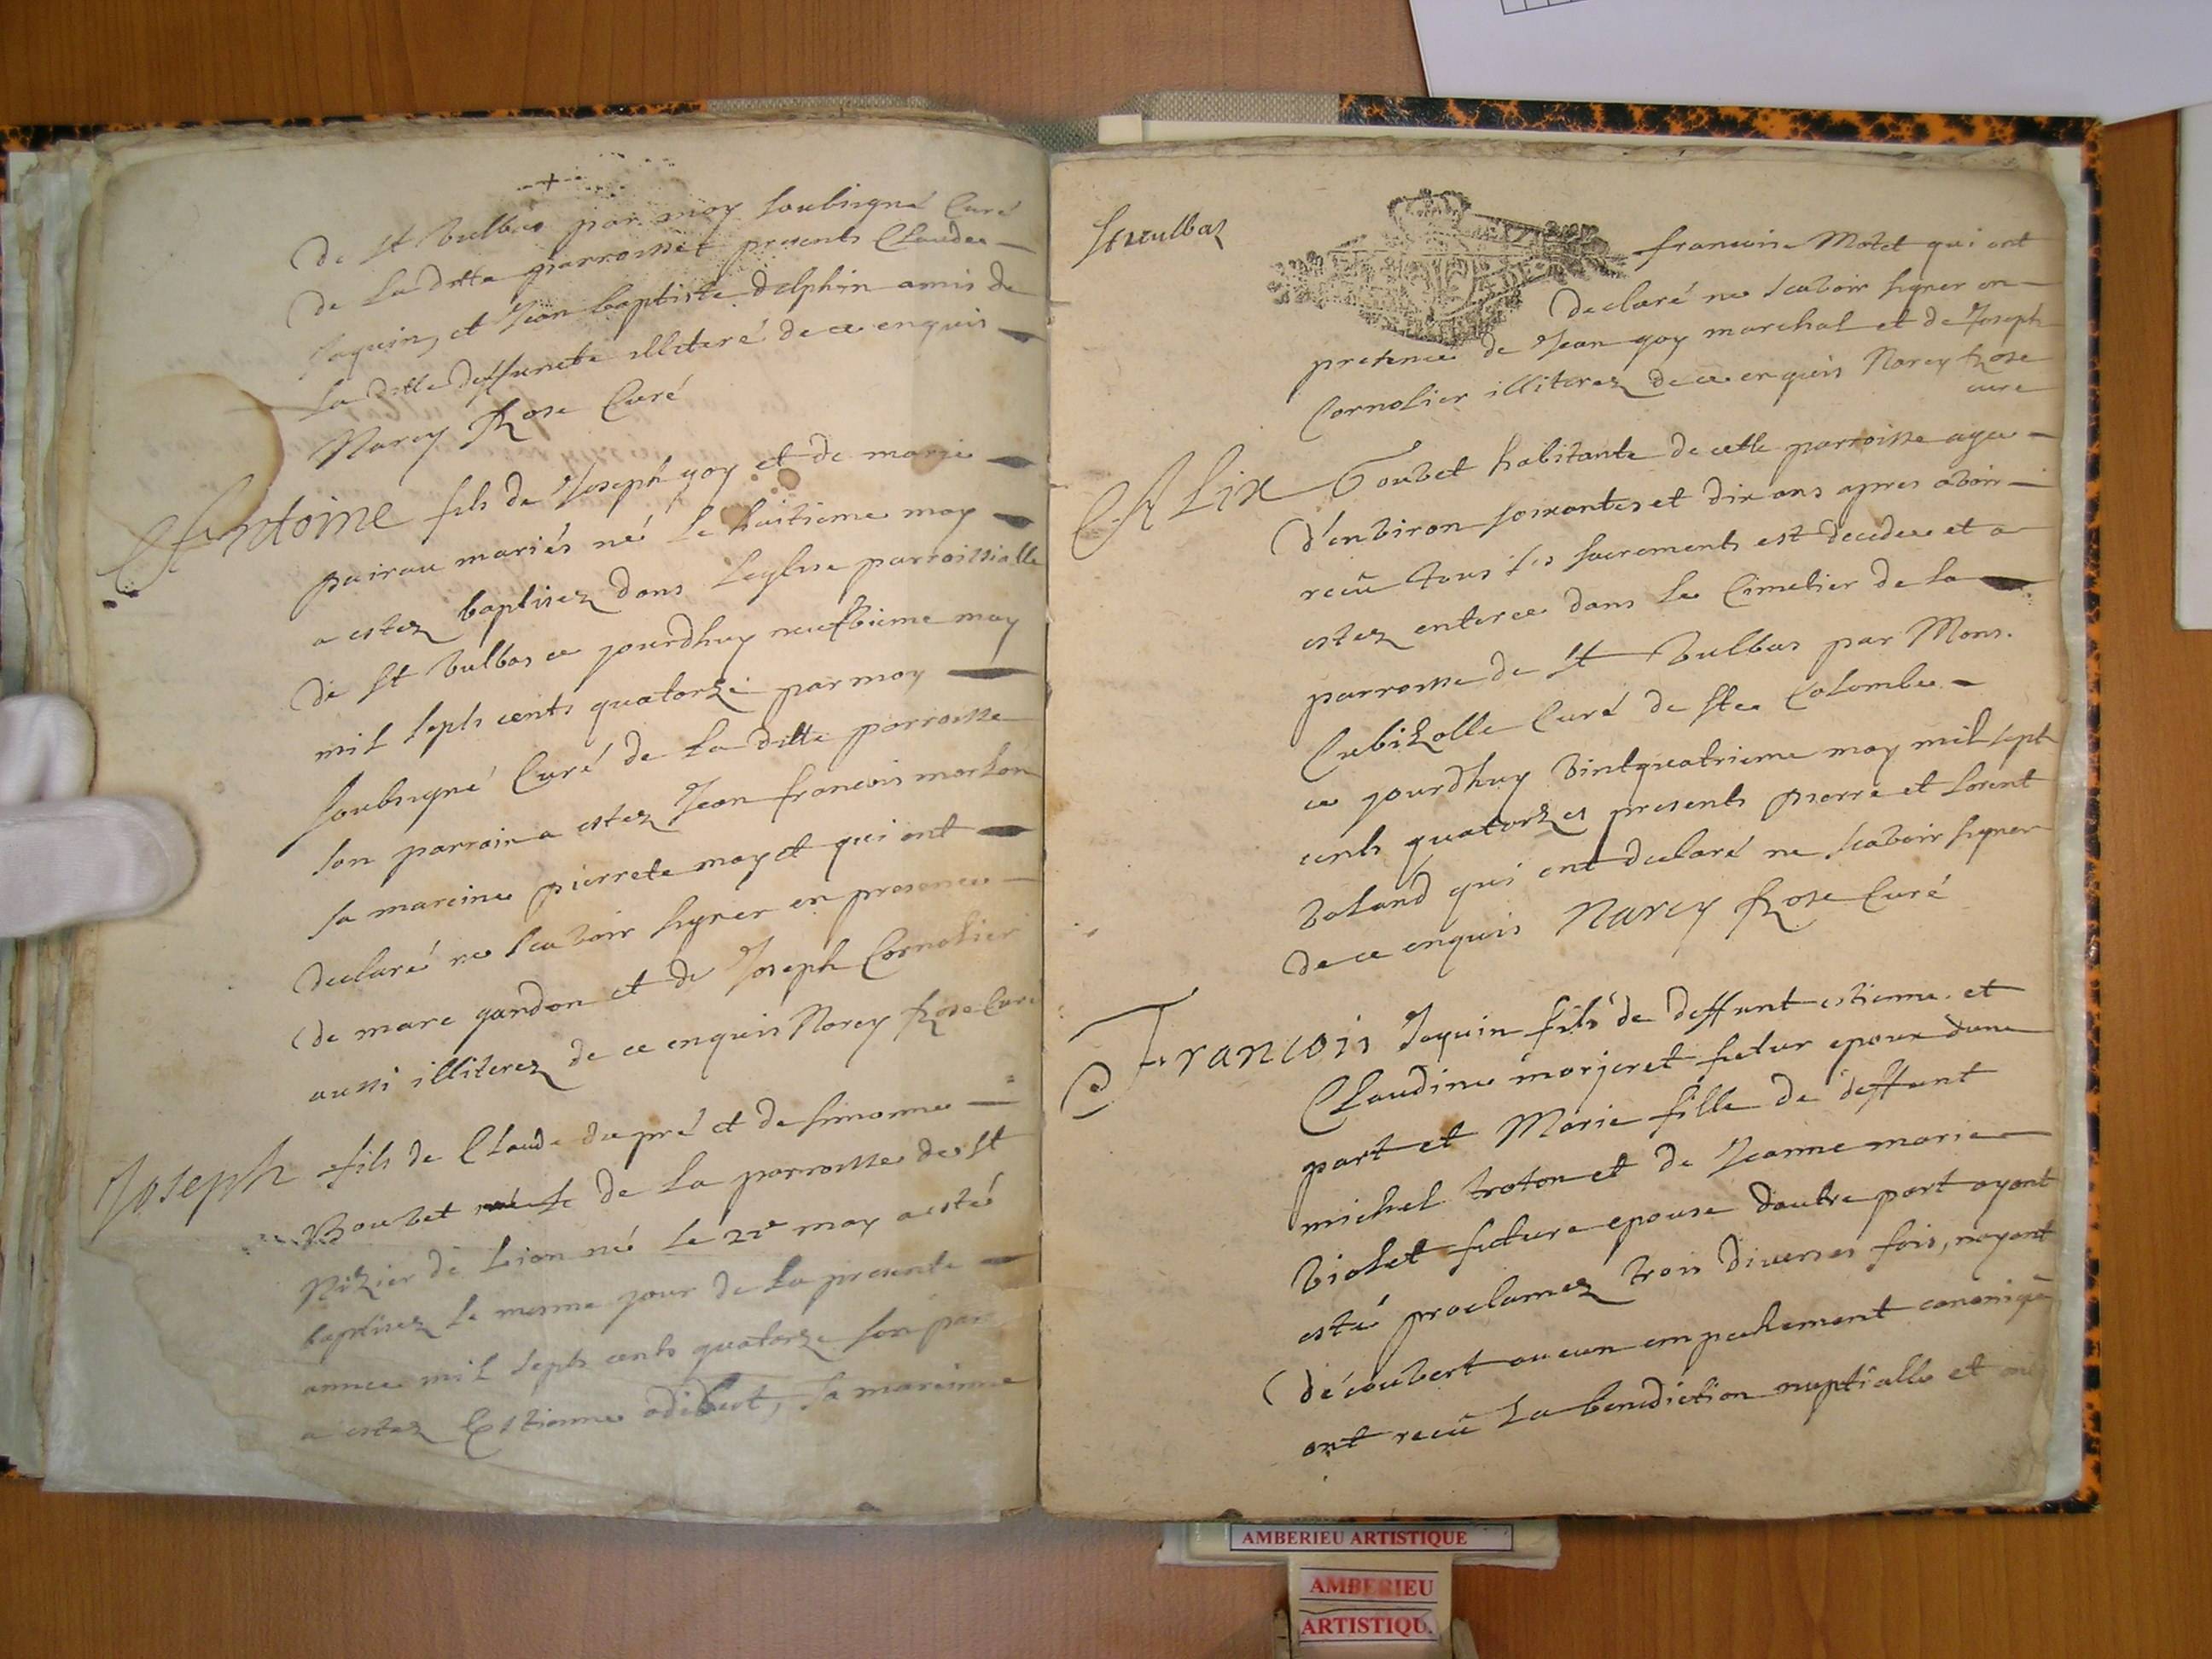 De st Vulbas par moy soubsigné Curé
De Laditte parroisse presents Claude
Jaquin, et Jean baptiste delphin amis de
La ditte deffuncte illiteré de ce enquis
Narcy Rose Curé
Antoine fils de Joseph goy et de marie
pairau mariés né le huitieme may
a estez baptisez dans Leglise parroissialle
De st Vulbas ce jourdhuy neufvieme may
mil septs cents quatorze par moy
soubsigné Curé de La ditte parroisse
son parrain a estez Jean francois morlon
sa mareine pierrete mayet qui ont
declaré ne scavoir signer en presence
de marc gandon et de Joseph Cornolier
aussi illiterez de ce enquis Narcy Rose Curé
Joseph fils de Claude dupré et de simonne
Bouvet de La parroisse de st
Nizier de Lion né Le 22e may a esté
baptisez le mesme jour de La presente
annee mil septs cents quatorze son par
a estez Estienne odibert, sa mareinne
St Vulbas
francoise Motet qui ont
Declaré ne scavoir signer en
presence de Jean goy marchal et de Joseph
Cornolier illiterez de ce enquis Narcy Rose
cure
Alix Goubet habitante de cette parroisse agee
D'environ soixantes et dix ans apres avoir
recû tous les sacrements est decedee et a
estez enteree dans Le Cimetier de La
parroisse de st Vulbas par Mons.
Cubizolle Curé de ste Colombe
ce jourdhuy vintquatrieme may mil septs
cents quatorzes presents pierre et Lorent
Voland qui ont declaré ne scavoir signer
De ce enquis Narcy Rose Curé
Francois Jaquin fils de deffunt estienne et
Claudine morjeret futur epoux dune
part et Marie fille de deffunt
michel troton et de Jeanne marie
Violet future epouse dautre part ayant
esté proclamez trois diverses fois, nayant
découvert aucun empechement canonique
ont recû La benediction nuptialle et
AMBERIEU ARTISTIQUE
AMBERIEU
ARTISTIQU